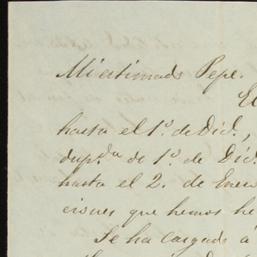 Mi estimado Pepe.
El
hasta el 1º. de Dic.,
dup.da de 1º. de Dic.
hasta el 2. de Enero
ciones que hemos he
Se ha cargado á